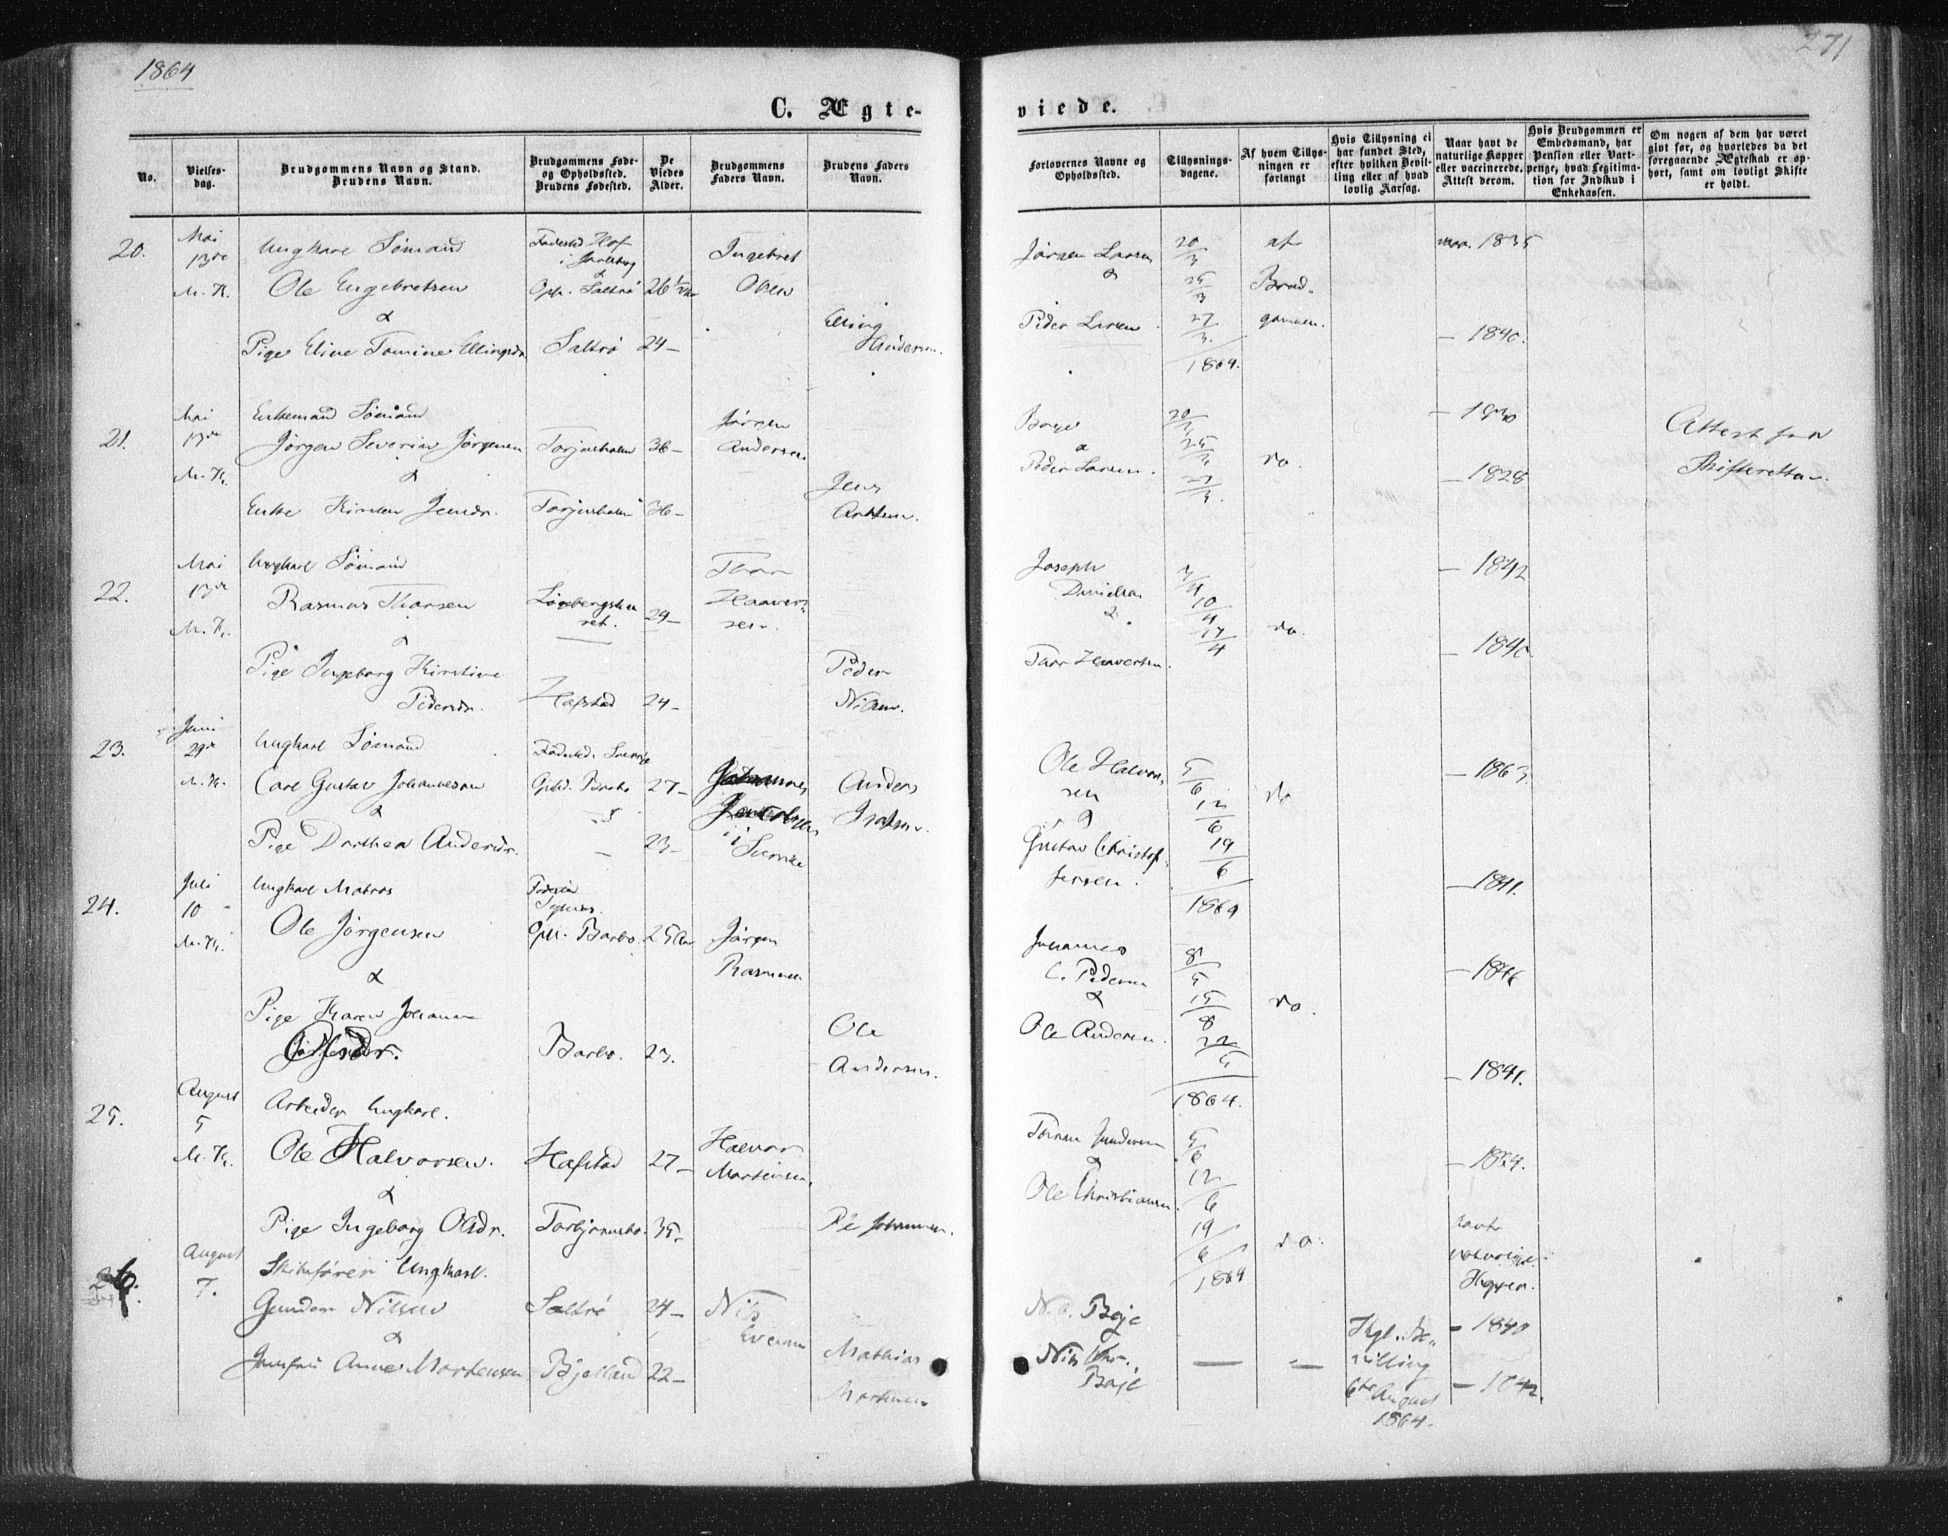 1864
271
C. Ægte-
viede.
No.
Vielses-
dag.
Brudgommens Navn og Stand.
Brudens Navn.
Brudgommens Føde-
og Opholdssted.
Brudens Fødested.
De
Viedes
Alder.
Brudgommens
Faders Navn.
Brudens Faders
Navn.
Forlovernes Navne og
Opholdssted.
Tillysnings-
dagene.
Af hvem Tillys-
ningen er
forlangt
Hvis Tillysning ei
har fundet Sted,
efter hvilken Bevil-
ling eller af hvad
lovlig Aarsag.
Naar havt de
naturlige Kopper
eller vaccinerede.
Attest derom.
Hvis Brudgommen er
Embedsmand, har
Pension eller Vart-
penge, hvad Legitima-
tion for Indskud i
Enkekassen.
Om nogen af dem har været
givt før, og hvorledes da det
foregaaende Ægteskab er op-
hørt, samt om lovligt Skifte
er holdt.
20.
Mai
13de
M. K.
Ungkarl Sømand
Ole Engebretsen
&
Pige Eline Tomine Ellingsdr.
Fødested Hof
i Jarlsberg
Oph. Saltrø
Saltrø
26½
24 –
Ingebret
Olsen
Elling
Jørgen Larsen
&
Peder Larsen
20/3
25/3
27/3
1864.
af
Brud-
gommen.
1835
– 1840.
21.
Mai
13de
M. K.
Enkemand Sømand
Jørgen Severin Jørgensen
&
Enke Kirsten Jensdr.
Torjusholm
Torjusholm
36 –
36 –
Jørgen
Andersen
Jens
Børge
&
Peder Larsen.
20/3
25/3
27/3.
do.
– 1830
– 1828
Attest fra
Skifteretten.
22.
Mai
13de
M. K.
Ungkarl Sømand
Rasmus Thorsen
&
Pige Ingeborg Kirstine
Pedersdr.
Hafstad
29 –
24 –
Thor
Haavor-
sen.
Peder
Nilsen.
Joseph
Danielsen
&
Thor Haavorsen.
10/4
17/4
do.
– 1842
– 1840.
23.
Juni
29de
M. K.
Ungkarl Sømand
Carl Gustav Johannesen
&
Pige Dorthea Andersdr.
Fødested Sverrig
27 –
23 –
Johannes
i Sverrige
Anders
Ole Halvor-
sen
&
Gustav Christof-
fersen.
5/6
12/6
19/6
1864
do
– 1863
– 1841.
24.
Juli
10
M. K.
Ungkarl Matros
Ole Jørgensen
&
Pige Karen Johanne
Olsdr.
Oph. Barbo
Barbo.
25 Aar
23.
Jørgen
Rasmussen
Ole
Andersen.
Johannes
C. Pedersen
&
Ole Andersen.
do.
– 1841.
1864.
25.
August
5
M. K.
Arbeider Ungkarl.
Ole Halvorsen.
&
Pige Ingeborg Olsdr.
Hafstad
27 –
35 –
Halvor
Mortensen.
&
Ole Christiansen.
5/6
12/6
19/6
1864
do.
– 1834.
havt
naturlige
Kopper.
26.
August
7.
Skibsfører Ungkarl.
Gunder Nilsen
&
Jomfru Anne Mortensen
Saltrø
Bjelland
24 –
22 –
Nils
Mathias
Mortensen
N. C. Boje
Nils Chr.
Boje
—
—
Kgl. Be-
villing
6te August
1864.
– 1840
– 1842.